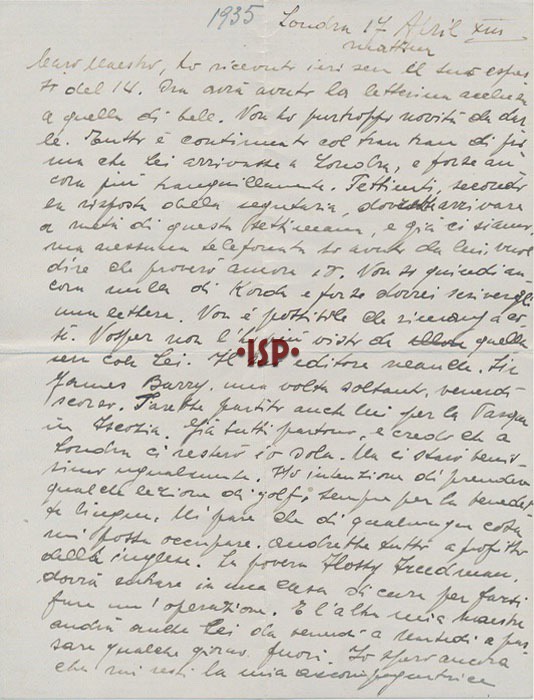 1935 Londra 17 April XIII
mattina
Caro Maestro, ho ricevuto ieri sera il suo espres
so del 14. Ora avrà avuto la letterina acclusa
a quella di bell. Non ho purtroppo novità da dar
le. Tutto è continuato col tran tran di pri
ma che Lei arrivasse a Londra, e forse an
cora più tranquillamente. secondo
la risposta della segretaria, dovrebbe arrivare
a metà di questa settimana, e già ci siamo,
ma nessuna telefonata ho avuto da lui, vuol
dire che proverò ancora io. Non so quindi an
cora nulla di Korda e forse dovrei scrivergli
una lettera. Non è possibile che rimanga co
sì. Vosper non l'ho più visto da quella
sera con Lei. Il ISP editore neanche. Sir
James Barry, una volta soltanto, venerdì
scorso. Sarebbe partito anche lui per la Pasqua
in Iscozia. Già tutti partono, e credo che a
Londra ci resterò io sola. Ma ci starò benis
simo ugualmente. Ho intenzione di prendere
qualche lezione di golf, sempre per la benedet
ta lingua. Mi pare che di qualunque cosa
mi possa occupare, andrebbe tutto a profitto
della inglese. La povera Flossy Freedman,
dovrà entrare in una casa di cura per farsi
fare un'operazione. E l'altra mia maestra
andrà anche Lei da venerdì a martedì a pas
sare qualche giorno fuori. Io spero ancora
che mi resti la mia accompagnatrice